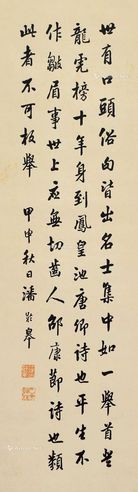 世有口頭俗句皆出名士集中如一舉首登
龍虎榜十年身到鳳皇池唐卿詩也平生不
作皺眉事世上应無切齒人邵康節詩也類
此者不可枚舉
甲申秋日潘齡皋